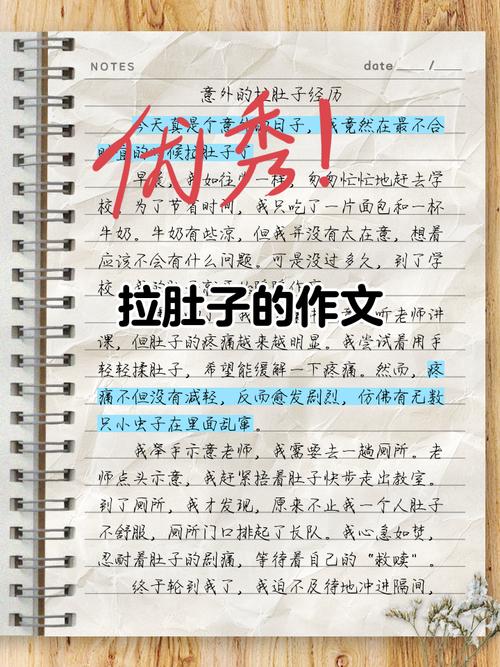 NOTES
date / 
意外的拉肚子经历
优秀!
今天真是个意外的日子，我竟然在最不合
时宜的时候拉肚子了
早晨，我如往常一样，匆匆忙忙地赶去学
校。为了节省时间，我只吃了一片面包和一杯
牛奶。牛奶有些凉，但我并没有太在意，想着
应该不会有什么问题。可是没过多久，到了学
校
拉肚子的作文
听老师讲
课，但肚子的疼痛越来越明显。我尝试着用手
轻轻揉肚子，希望能缓解一下疼痛。然而，疼
痛不但没有减轻，反而愈发剧烈，仿佛有无数
只小虫子在里面乱窜。
我举手示意老师，我需要去一趟厕所。老
师点头示意，我赶紧捂着肚子快步走出教室。
到了厕所，我才发现，原来不止我一个人肚子
不舒服，厕所门口排起了长队。我心急如焚，
忍耐着肚子的剧痛，等待着自己的“救赎”。
终于轮到我了，我迫不及待地冲进隔间，